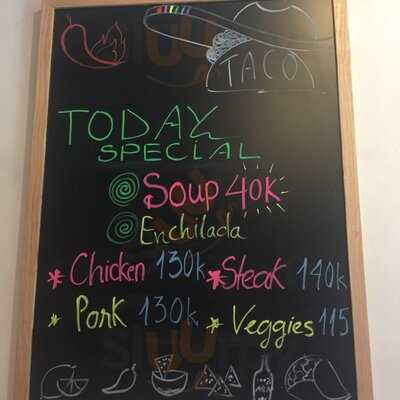 TACO
TODAY
SPECIAL
Soup 40K
Enchilada
* Chicken 130k * Steak 140k
* Pork 130k * Veggies 115